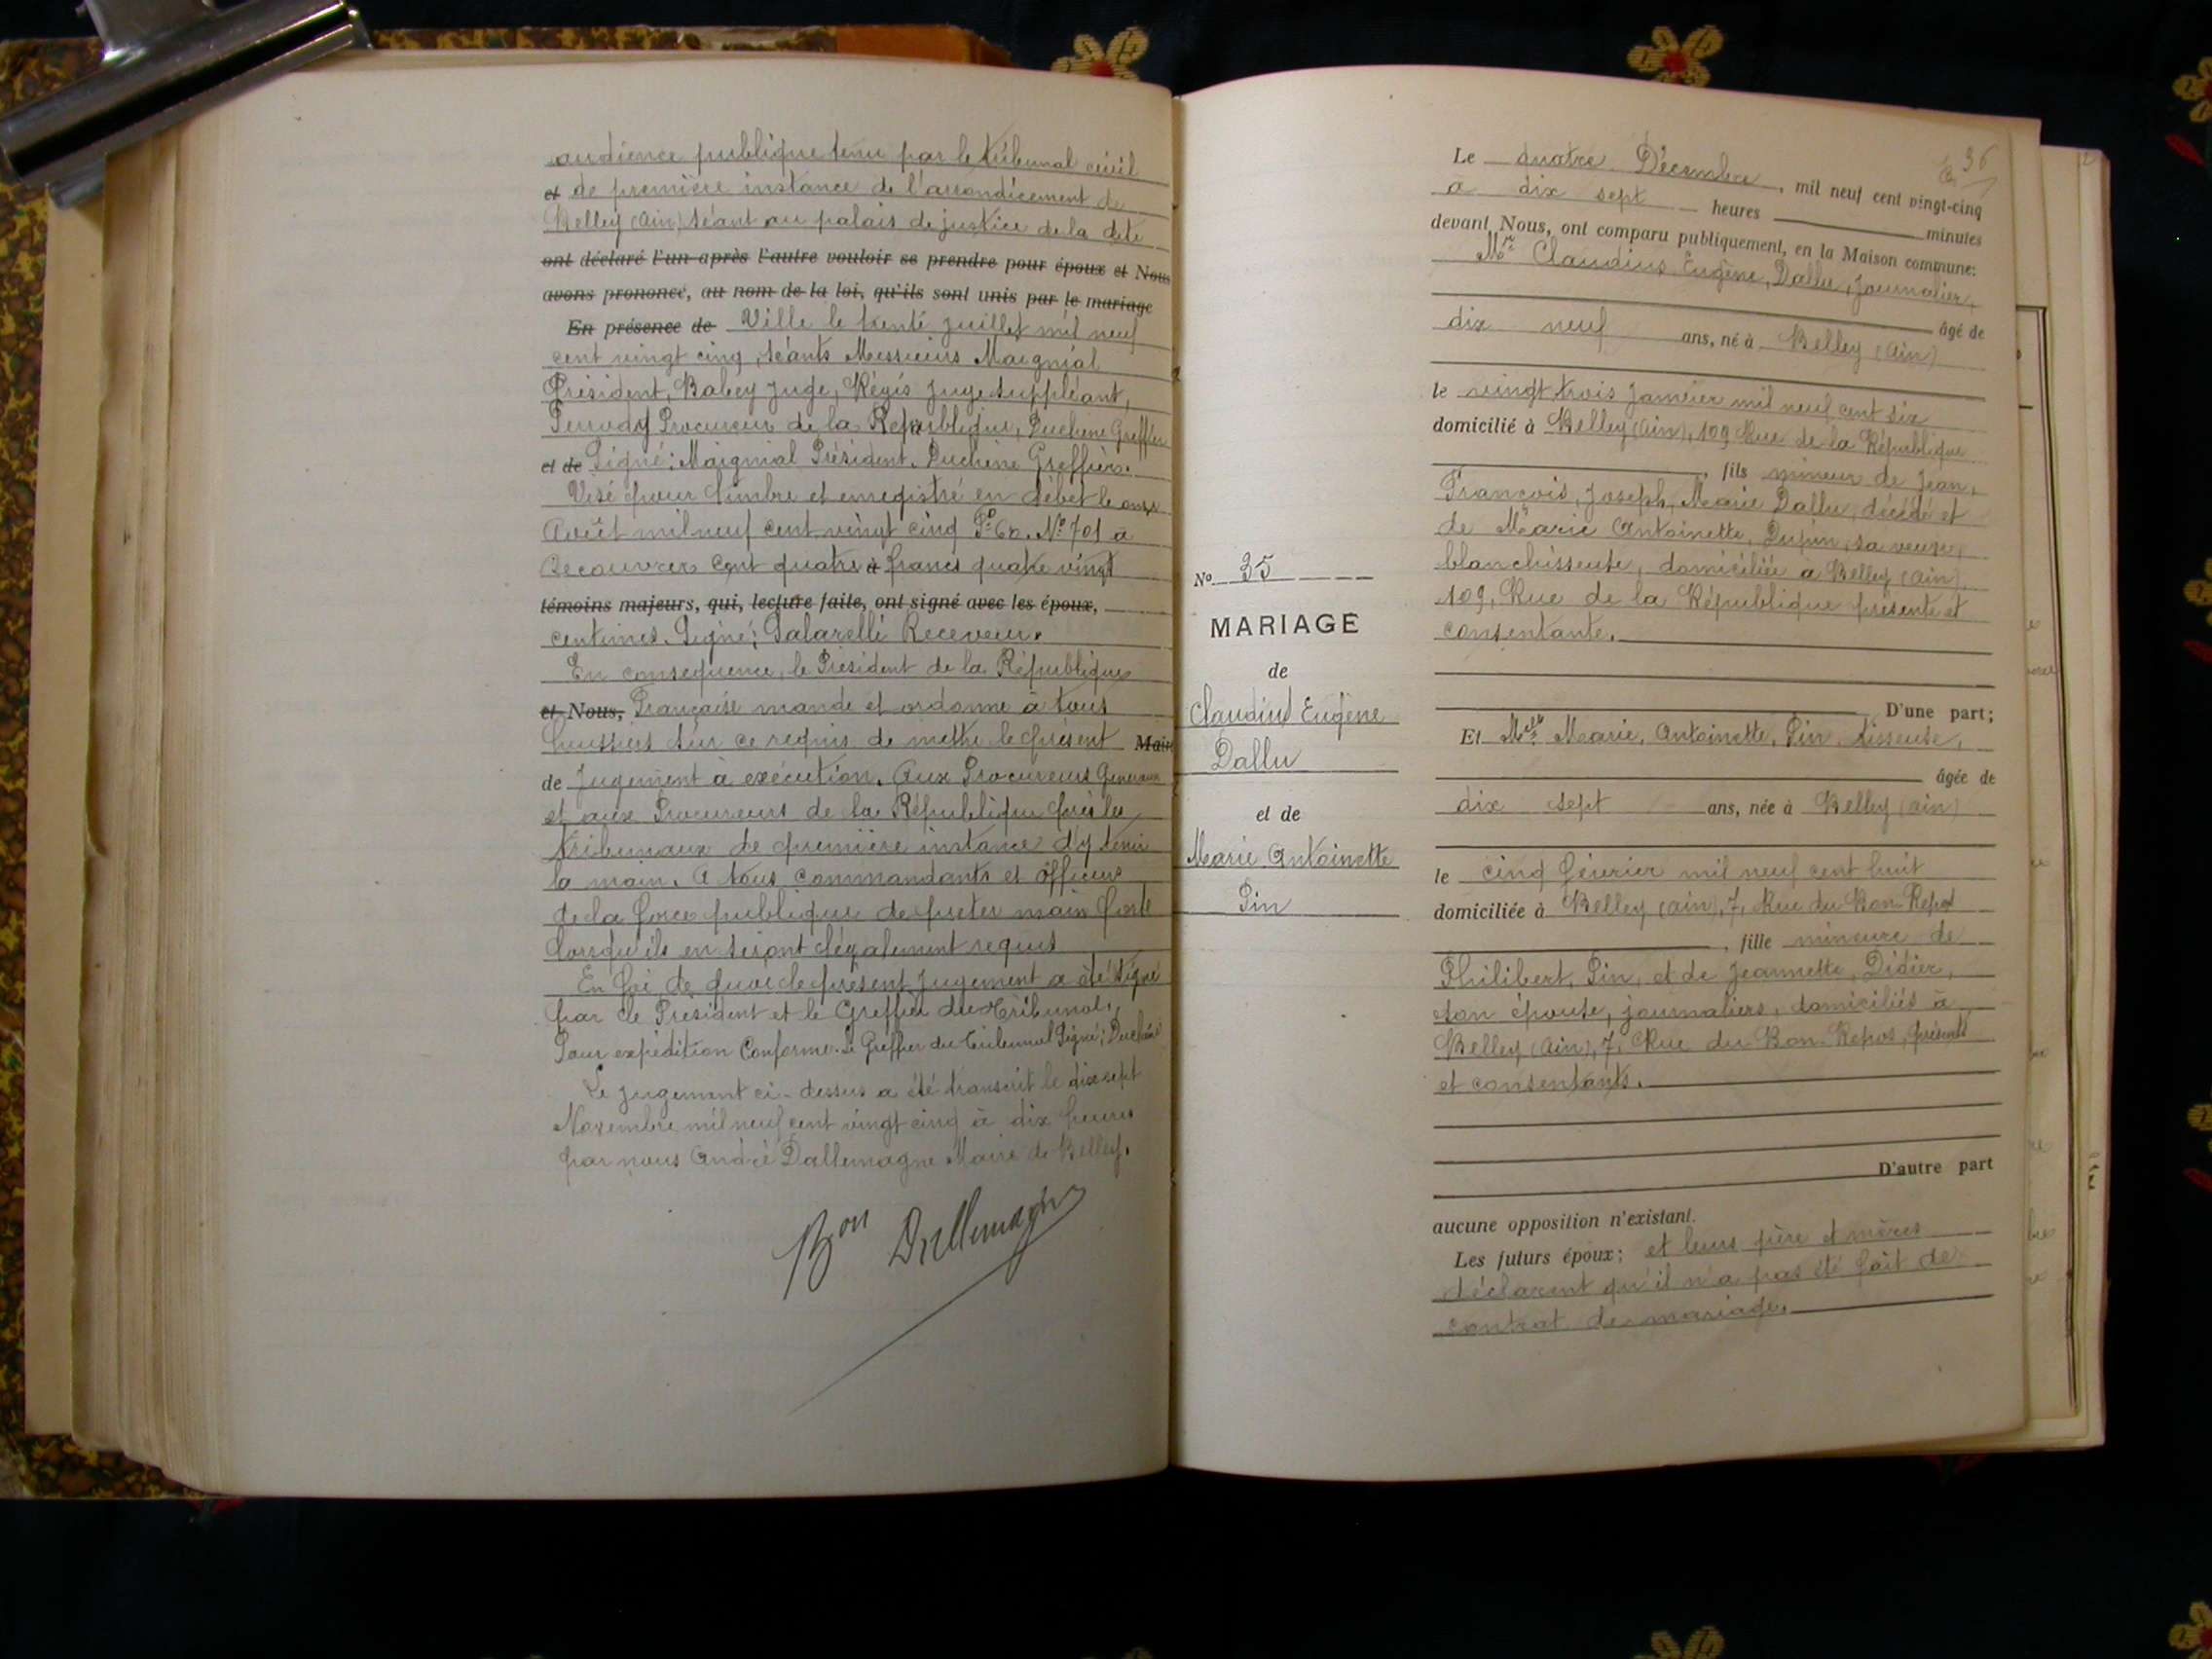 audience publique tenu par le tribunal civil
et de première instance de l'arrondicement de
Belley (Ain) séant au palais de justice de la dete
ont déclaré l'un après l'autre vouloir se prendre pour époux et Nous
avons prononcé, au nom de la loi, qu'ils sont unis par le mariage
En présence de Ville le trente juillet mil neuf
cent vingt cinq, séants Messieurs Maignial
Président, Babey Juge, Régis Juge suppléant,
Procureur de la République, Duchene Greffier
et de Signé: Maignial Président. Duchêne Greffier.
Visé pour timbre et enregistré en débet le onze
Août mil neuf cent vingt cinq Fo 60. No 701 à
Recouvrer Cent quatre à francs quatre vingt
témoins majeurs, qui, lecture faite, ont signé avec les époux,
centimes. Signé; Receveur.
En consequence, le Président de la République
et Nous, Française mande et ordonne à tous
huissiers sur ce requis de mettre le présent Mair
de Jugement à exécution. Aux Procureurs Generaux
et aux Procureurs de la République près les
tribunaux de première instance d'y tenir
la main. A tous commandants et officiers
de la force publique de preter main forte
lorsqu'ils en seront légalement requis
En foi de quoi le présent Jugement a été signé
par le Président et le Greffier du Tribunal.
Pour expédition Conforme. Le Greffier du Tribunal Signé; Duchêne
Le jugement ci-dessus a été transcrit le dix sept
Novembre mil neuf cent vingt cinq à dix heures
par nous André Dallemagne Maire de Belley.
Bon Dallemagne
No 35
MARIAGE
de
Claudius Eugène
Dallu
et de
Marie Antoinette
Pin
36
Le quatre Décembre, mil neuf cent vingt-cinq
à dix sept heures minutes
devant Nous, ont comparu publiquement, en la Maison commune:
Mr Claudius Eugène, Dallu, journalier,
âgé de
dix neuf ans, né à Belley (Ain)
le vingt trois janvier mil neuf cent six
domicilié à Belley (Ain), 109 Rue de la République
, fils mineur de Jean,
François, Joseph, Marie Dallu, décédé et
de Marie Antoinette, Dupin, sa veuve,
blanchisseuse, domiciliée a Belley (Ain)
109, Rue de la République présente et
consentante.
D'une part;
Et Melle Marie, Antoinette, Pin, tisseuse,
âgée de
dix sept ans, née à Belley (Ain)
le cinq février mil neuf cent huit
domiciliée à Belley (Ain), 7, Rue du Bon Repos
, fille mineure de
Philibert, Pin, et de Jeannette, Didier,
son épouse, journaliers, domiciliés à
Belley (Ain), 7, Rue du Bon Repos, présents
et consentants.
D'autre part
aucune opposition n'existant.
Les futurs époux; et leurs père et mères
déclarent qu'il n'a pas été fait de
contrat de mariage.